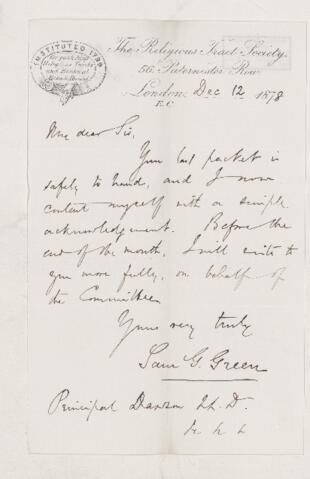 INSTITUTED 1799
The Religious Tract Society,
56, Paternoster Row,
London, Dec 12 1878
E.C.
My dear Sir,
Your last packet is
safely to hand, and I now
content myself with a simple
acknowledgment. Before the
end of the month, I will write to
you more fully, on behalf of
the Committee.
Yours very truly
Sam G. Green
Principal Dawson LL.D.
&c &c